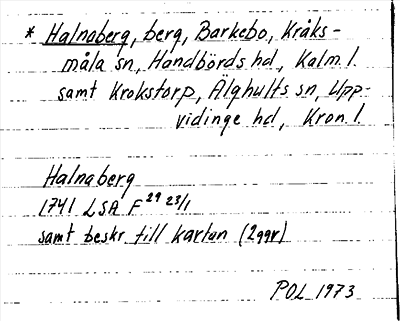 * Halnaberg, berg, Barkebo, Kråks-
måla sn, Handbörds hd, Kalm. l.
samt Krokstorp, Älghults sn, Upp-
vidinge hd, Kron. l.
Halnaberg
1741 LSA F 29 23/1
samt beskr till kartan (2ggr)
POL 1973